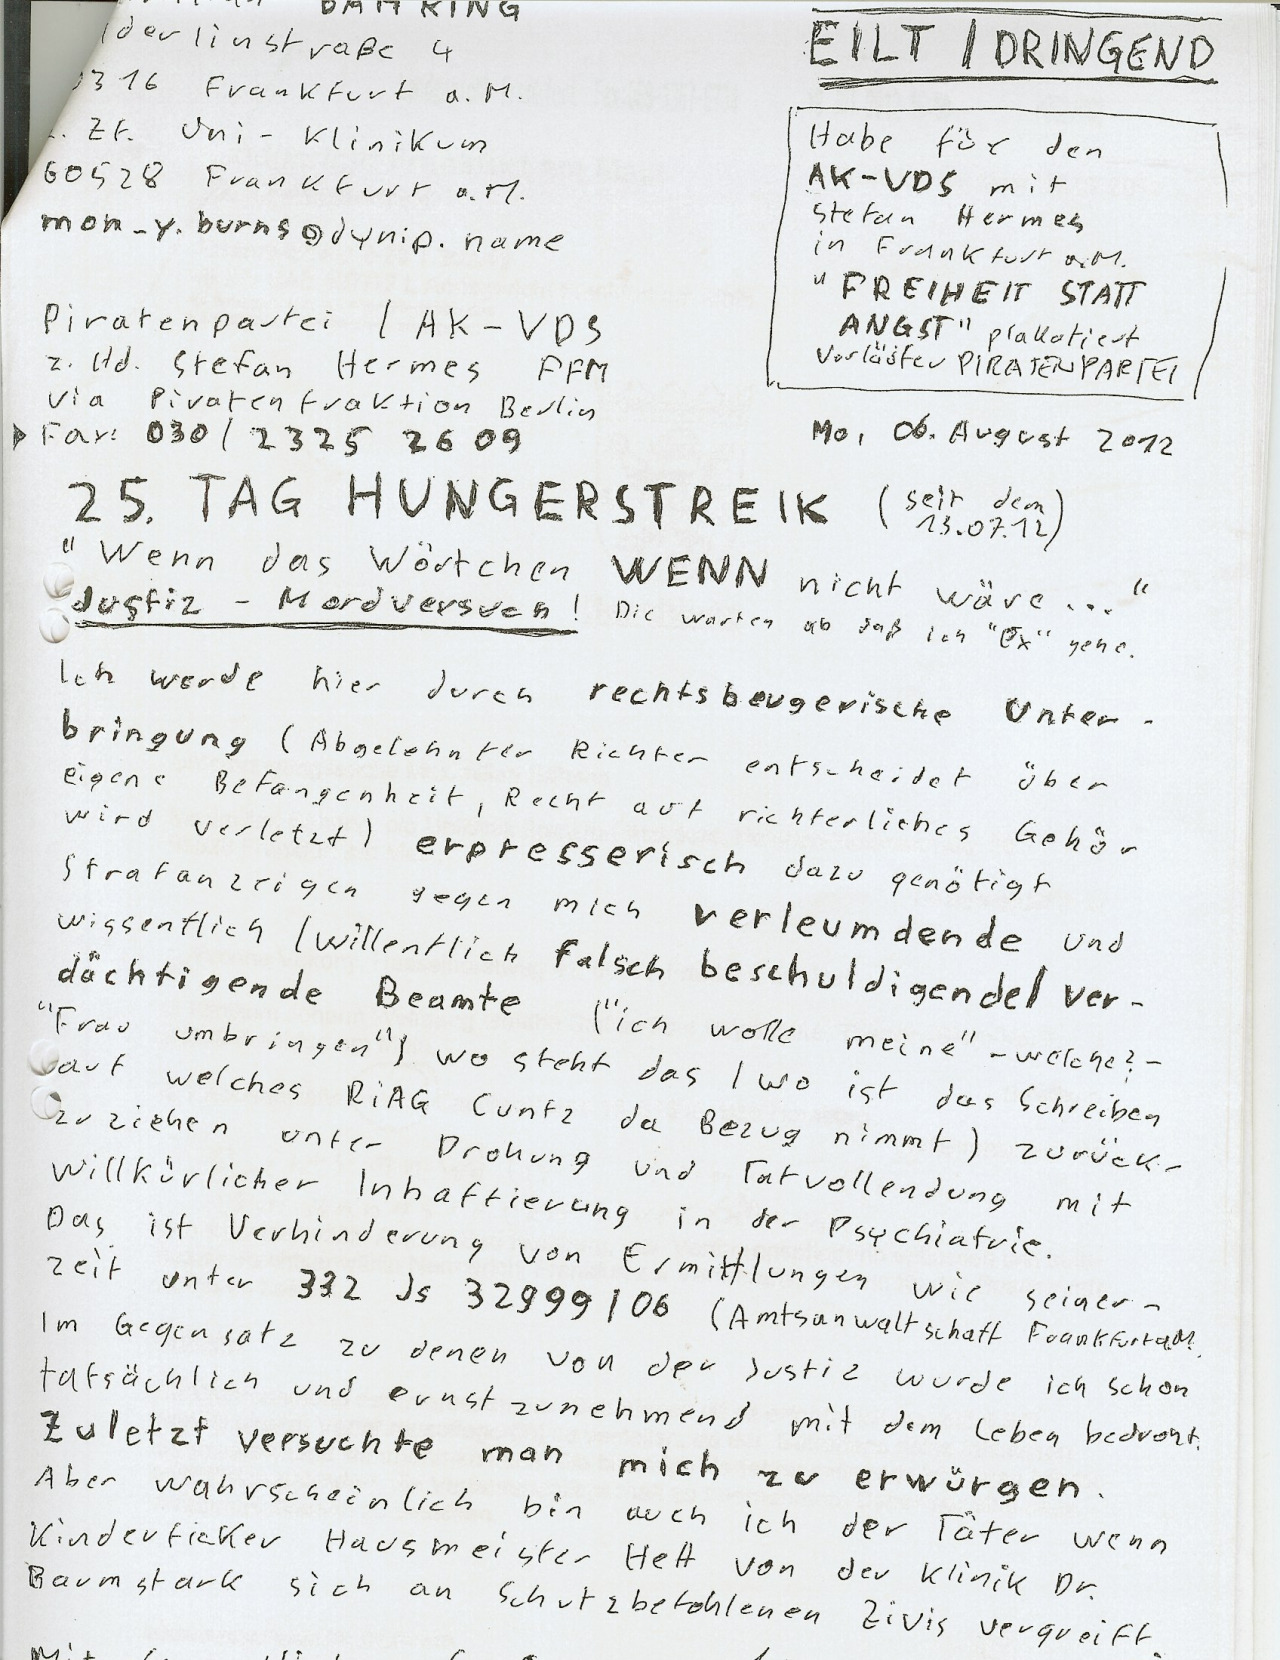 BÄHRING
derlinstraße 4
0316 Frankfurt a.M.
. Zt. Uni-Klinikum
60528 Frankfurt a.M.
mon_y.burns@dynip.name
EILT / DRINGEND
Habe für den
AK-VDS mit
Stefan Hermes
in Frankfurt a.M.
"FREIHEIT STATT
ANGST" plakatiert
Vorläufer PIRATENPARTEI
Piratenpartei / AK-VDS
z. Hd. Stefan Hermes FFM
via Piratenfraktion Berlin
Fax: 030 / 2325 2609
Mo, 06. August 2012
25. TAG HUNGERSTREIK (seit dem
13.07.12)
"Wenn das Wörtchen WENN nicht wäre ..."
Justiz-Mordversuch! Die warten ab daß ich "Ex" gehe.
Ich werde hier durch rechtsbeugerische Unter-
bringung (Abgelehnter Richter entscheidet über
eigene Befangenheit, Recht auf richterliches Gehör
wird verletzt) erpresserisch dazu genötigt
Strafanzeigen gegen mich verleumdende und
wissentlich / willentlich falsch beschuldigende / ver-
dächtigende Beamte ("ich wolle meine" -welche?-
"Frau umbringen"} wo steht das / wo ist das Schreiben
auf welches RiAG Cuntz da Bezug nimmt) zurück-
zuziehen unter Drohung und Tatvollendung mit
willkürlicher Inhaftierung in der Psychiatrie.
Das ist Verhinderung von Ermittlungen wie seiner-
zeit unter 332 Js 32999/06 (Amtsanwaltschaft Frankfurt a.M.
Im Gegensatz zu denen von der Justiz wurde ich schon
tatsächlich und ernstzunehmend mit dem Leben bedroht.
Zuletzt versuchte man mich zu erwürgen.
Aber wahrscheinlich bin auch ich der Täter wenn
Kinderficker Hausmeister Hett von der Klinik Dr.
Baumstark sich an Schutzbefohlenen Zivis vergreift.